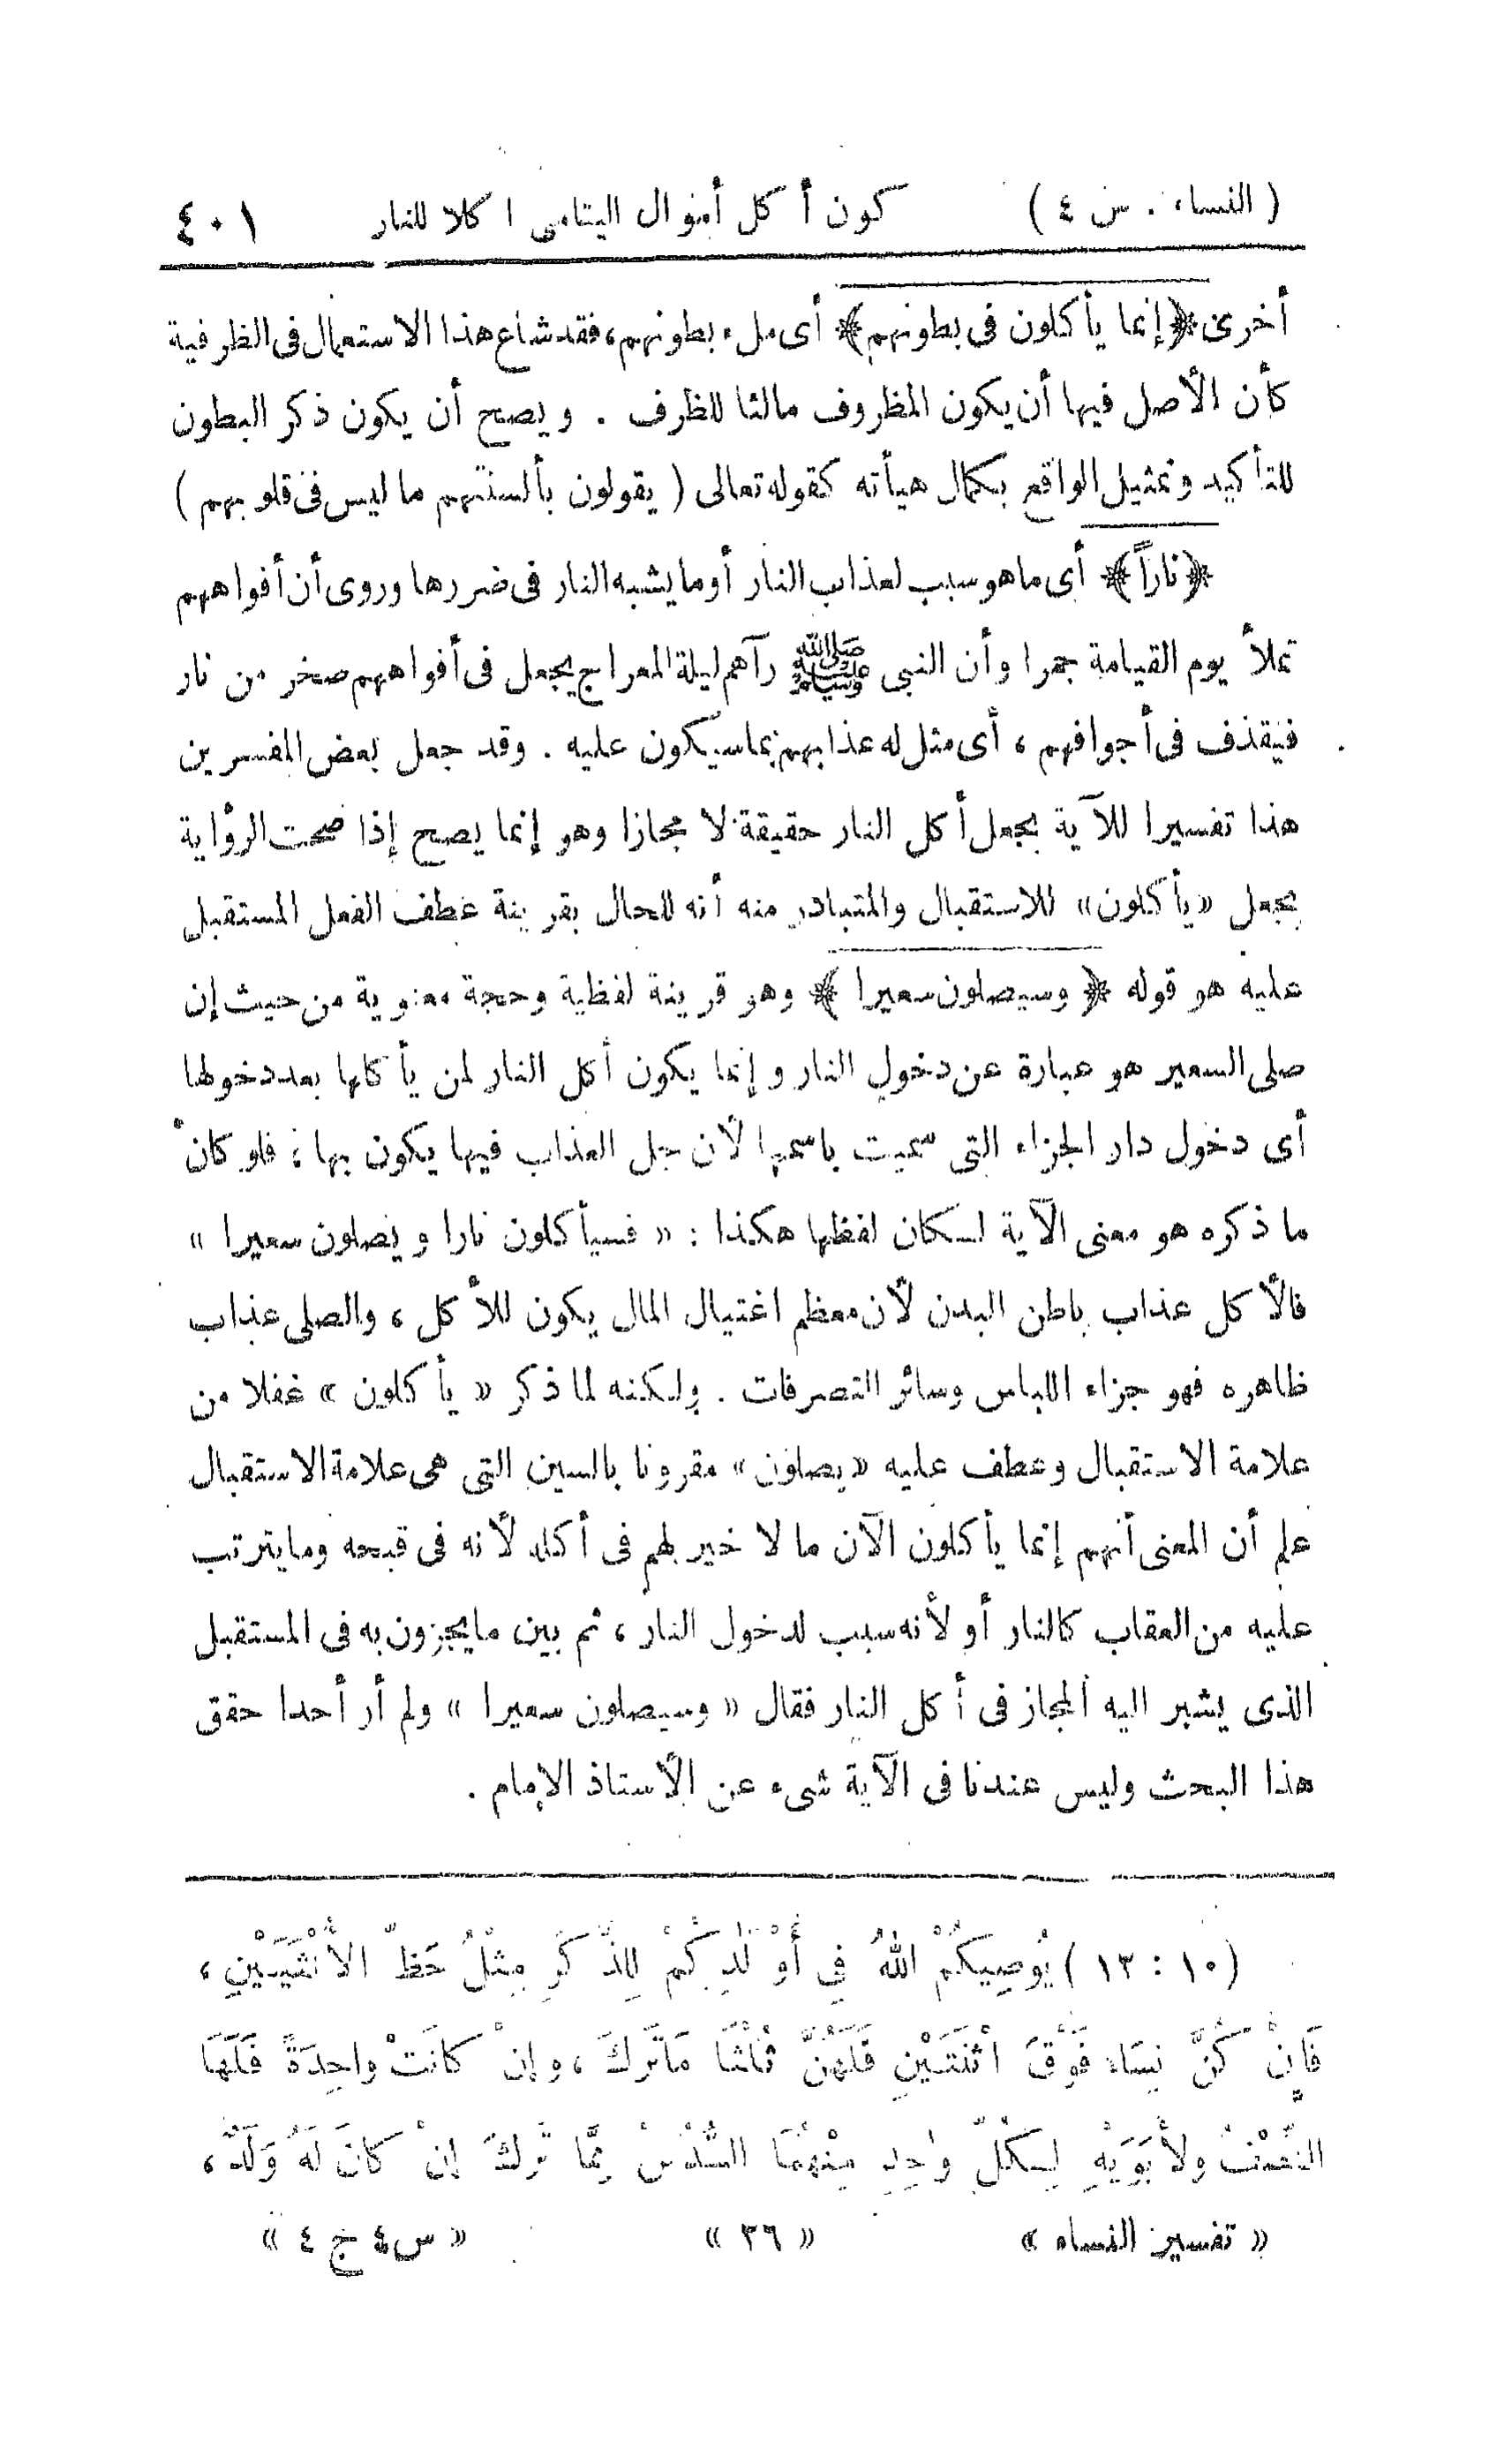 ( النساء . س ٤ ) كون أكل أموال اليتامى اكلا للنار ٤٠١
أخرى ﴿إنما يأكلون فى بطونهم﴾ أى ملء بطونهم، فقد شاع هذا الاستعمال فى الظرفية
كأن الأصل فيها أن يكون المظروف مالئا للظرف . ويصح أن يكون ذكر البطون
للتأكيد وتمثيل الواقع بكمال هيأته كقوله تعالى ( يقولون بألسنتهم ما ليس فى قلوبهم )
﴿ناراً﴾ أى ما هو سبب لعذاب النار أو ما يشبه النار فى ضررها وروى أن أفواههم
تملأ يوم القيامة جمرا وأن النبى ﷺ رآهم ليلة المعراج يجعل فى أفواههم صخر من نار
فيقذف فى أجوافهم ، أى مثل له عذابهم بما سيكون عليه . وقد جعل بعض المفسرين
هذا تفسيرا للآية بجعل أكل النار حقيقة لا مجازا وهو إنما يصح إذا صحت الرواية
بجعل «يأكلون» للاستقبال والمتبادر منه أنه للحال بقرينة عطف الفعل المستقبل
عليه هو قوله ﴿ وسيصلون سعيرا ﴾ وهو قرينة لفظية وحجة معنوية من حيث إن
صلى السعير هو عبارة عن دخول النار وإنما يكون أكل النار لمن يأكلها بعد دخولها
أى دخول دار الجزاء التى سميت باسمها لأن جل العذاب فيها يكون بها ، فلو كان
ما ذكره هو معنى الآية لكان لفظها هكذا : « فسيأكلون نارا ويصلون سعيرا »
فالأكل عذاب باطن البدن لأن معظم اغتيال المال يكون للأكل ، والصلى عذاب
ظاهره فهو جزاء اللباس وسائر التصرفات . ولكنه لما ذكر « يأكلون » غفلا من
علامة الاستقبال وعطف عليه «يصلون» مقرونا بالسين التى هى علامة الاستقبال
علم أن المعنى أنهم إنما يأكلون الآن ما لا خير لهم فى أكله لأنه فى قبحه وما يترتب
عليه من العقاب كالنار أو لأنه سبب لدخول النار ، ثم بين ما يجزون به فى المستقبل
الذى يشير اليه المجاز فى أكل النار فقال « وسيصلون سعيرا » ولم أر أحدا حقق
هذا البحث وليس عندنا فى الآية شىء عن الأستاذ الإمام .
(١٠ : ١٣ ) يُوصِيكُمْ اللهُ فِي أَوْلَٰدِكُمْ لِلذَّكَرِ مِثْلُ حَظِّ الأُنْثَيَيْنِ ،
فَإِنْ كُنَّ نِسَاء فَوْقَ اثْنَتَيْنِ فَلَهُنَّ ثُلُثَا مَا تَرَكَ ، وإِنْ كَانَتْ واحِدَةً فَلَهَا
النِّصْفُ ولأَبَوَيْهِ لِكُلِّ وٰحِدٍ مِنْهُمَا السُّدُسُ مِمَّا تَرَكَ إِنْ كانَ لَهُ وَلَدٌ ،
« تفسير النساء » « ٣٦ » « س ٤ ج ٤ »